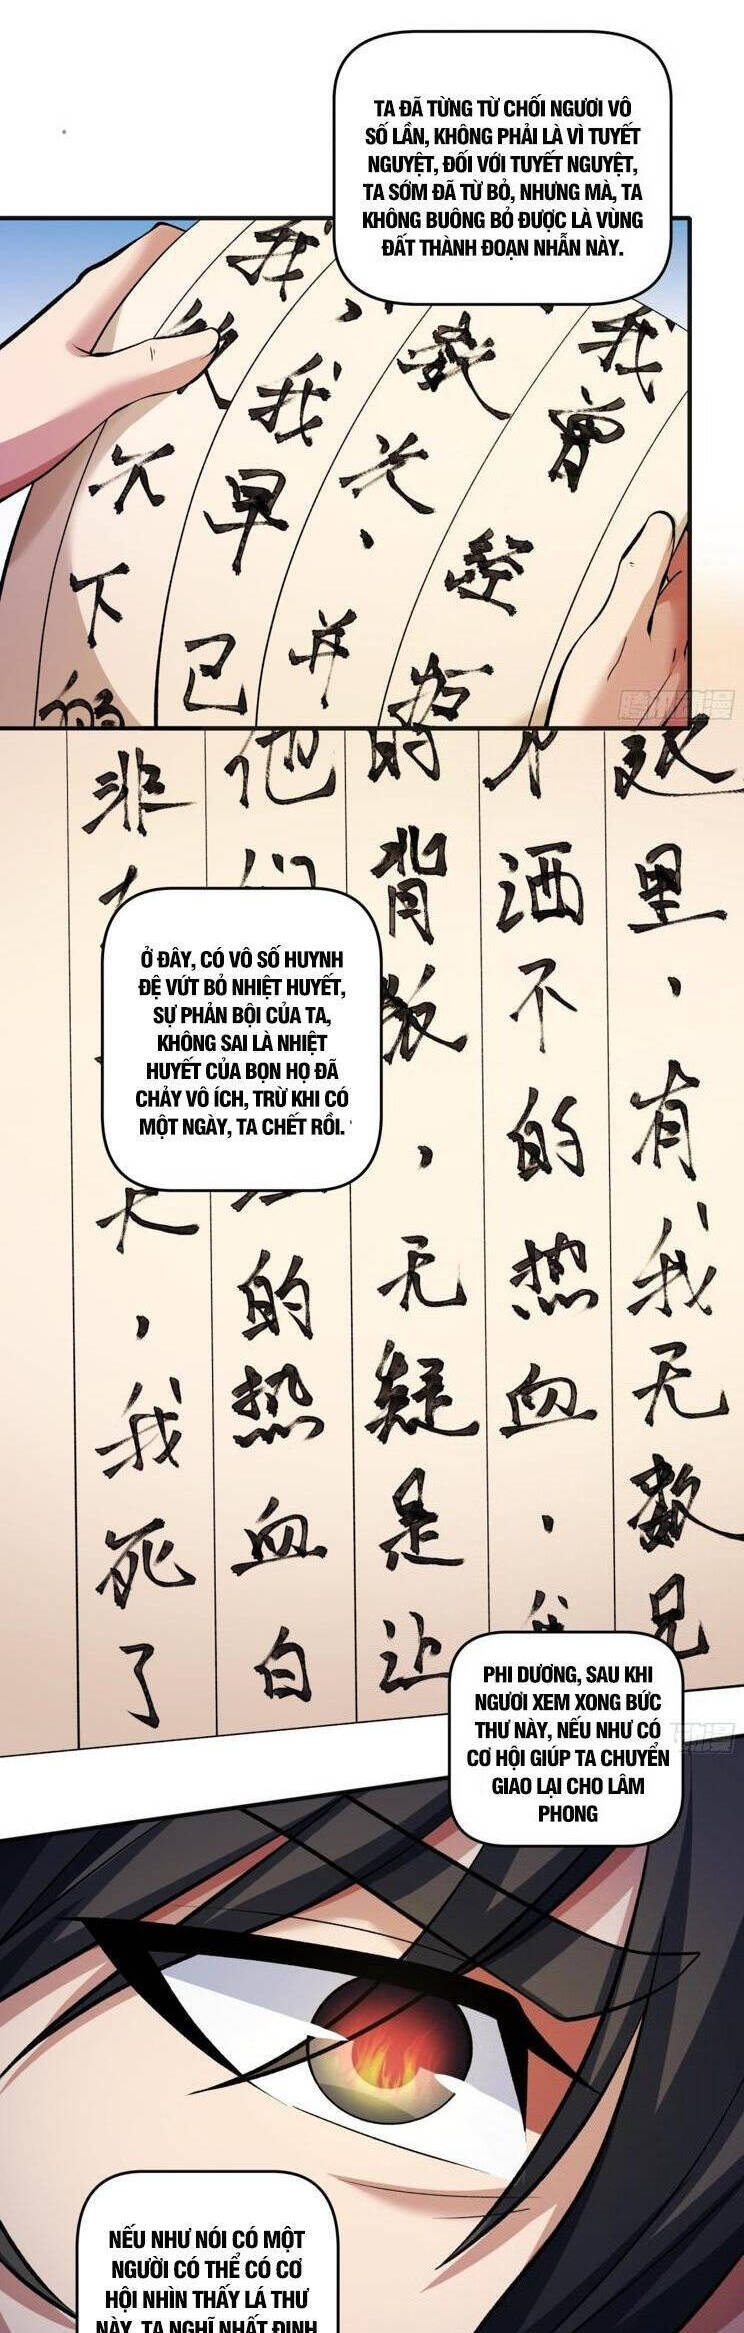 TA ĐÃ TỪNG TỪ CHỐI NGƯƠI VÔ
SỐ LẦN, KHÔNG PHẢI LÀ VÌ TUYẾT
NGUYỆT, ĐỐI VỚI TUYẾT NGUYỆT,
TA SỚM ĐÃ TỪ BỎ, NHƯNG MÀ, TA
KHÔNG BUÔNG BỎ ĐƯỢC LÀ VÙNG
ĐẤT THÀNH ĐOẠN NHẪN NÀY.
我曾经
我
并
我早已
不下的
腾讯动漫
Ở ĐÂY, CÓ VÔ SỐ HUYNH
ĐỆ VỨT BỎ NHIỆT HUYẾT,
SỰ PHẢN BỘI CỦA TA,
KHÔNG SAI LÀ NHIỆT
HUYẾT CỦA BỌN HỌ ĐÃ
CHẢY VÔ ÍCH, TRỪ KHI CÓ
MỘT NGÀY, TA CHẾT RỒI.
里,有我无数兄
洒不的热血,
的背叛,无疑是让
他们
的热血白
非
天,我死了
PHI DƯƠNG, SAU KHI
NGƯƠI XEM XONG BỨC
THƯ NÀY, NẾU NHƯ CÓ
CƠ HỘI GIÚP TA CHUYỂN
GIAO LẠI CHO LÂM
PHONG
动漫
NẾU NHƯ NÓI CÓ MỘT
NGƯỜI CÓ THỂ CÓ CƠ
HỘI NHÌN THẤY LÁ THƯ
NÀY, TA NGHĨ NHẤT ĐỊNH